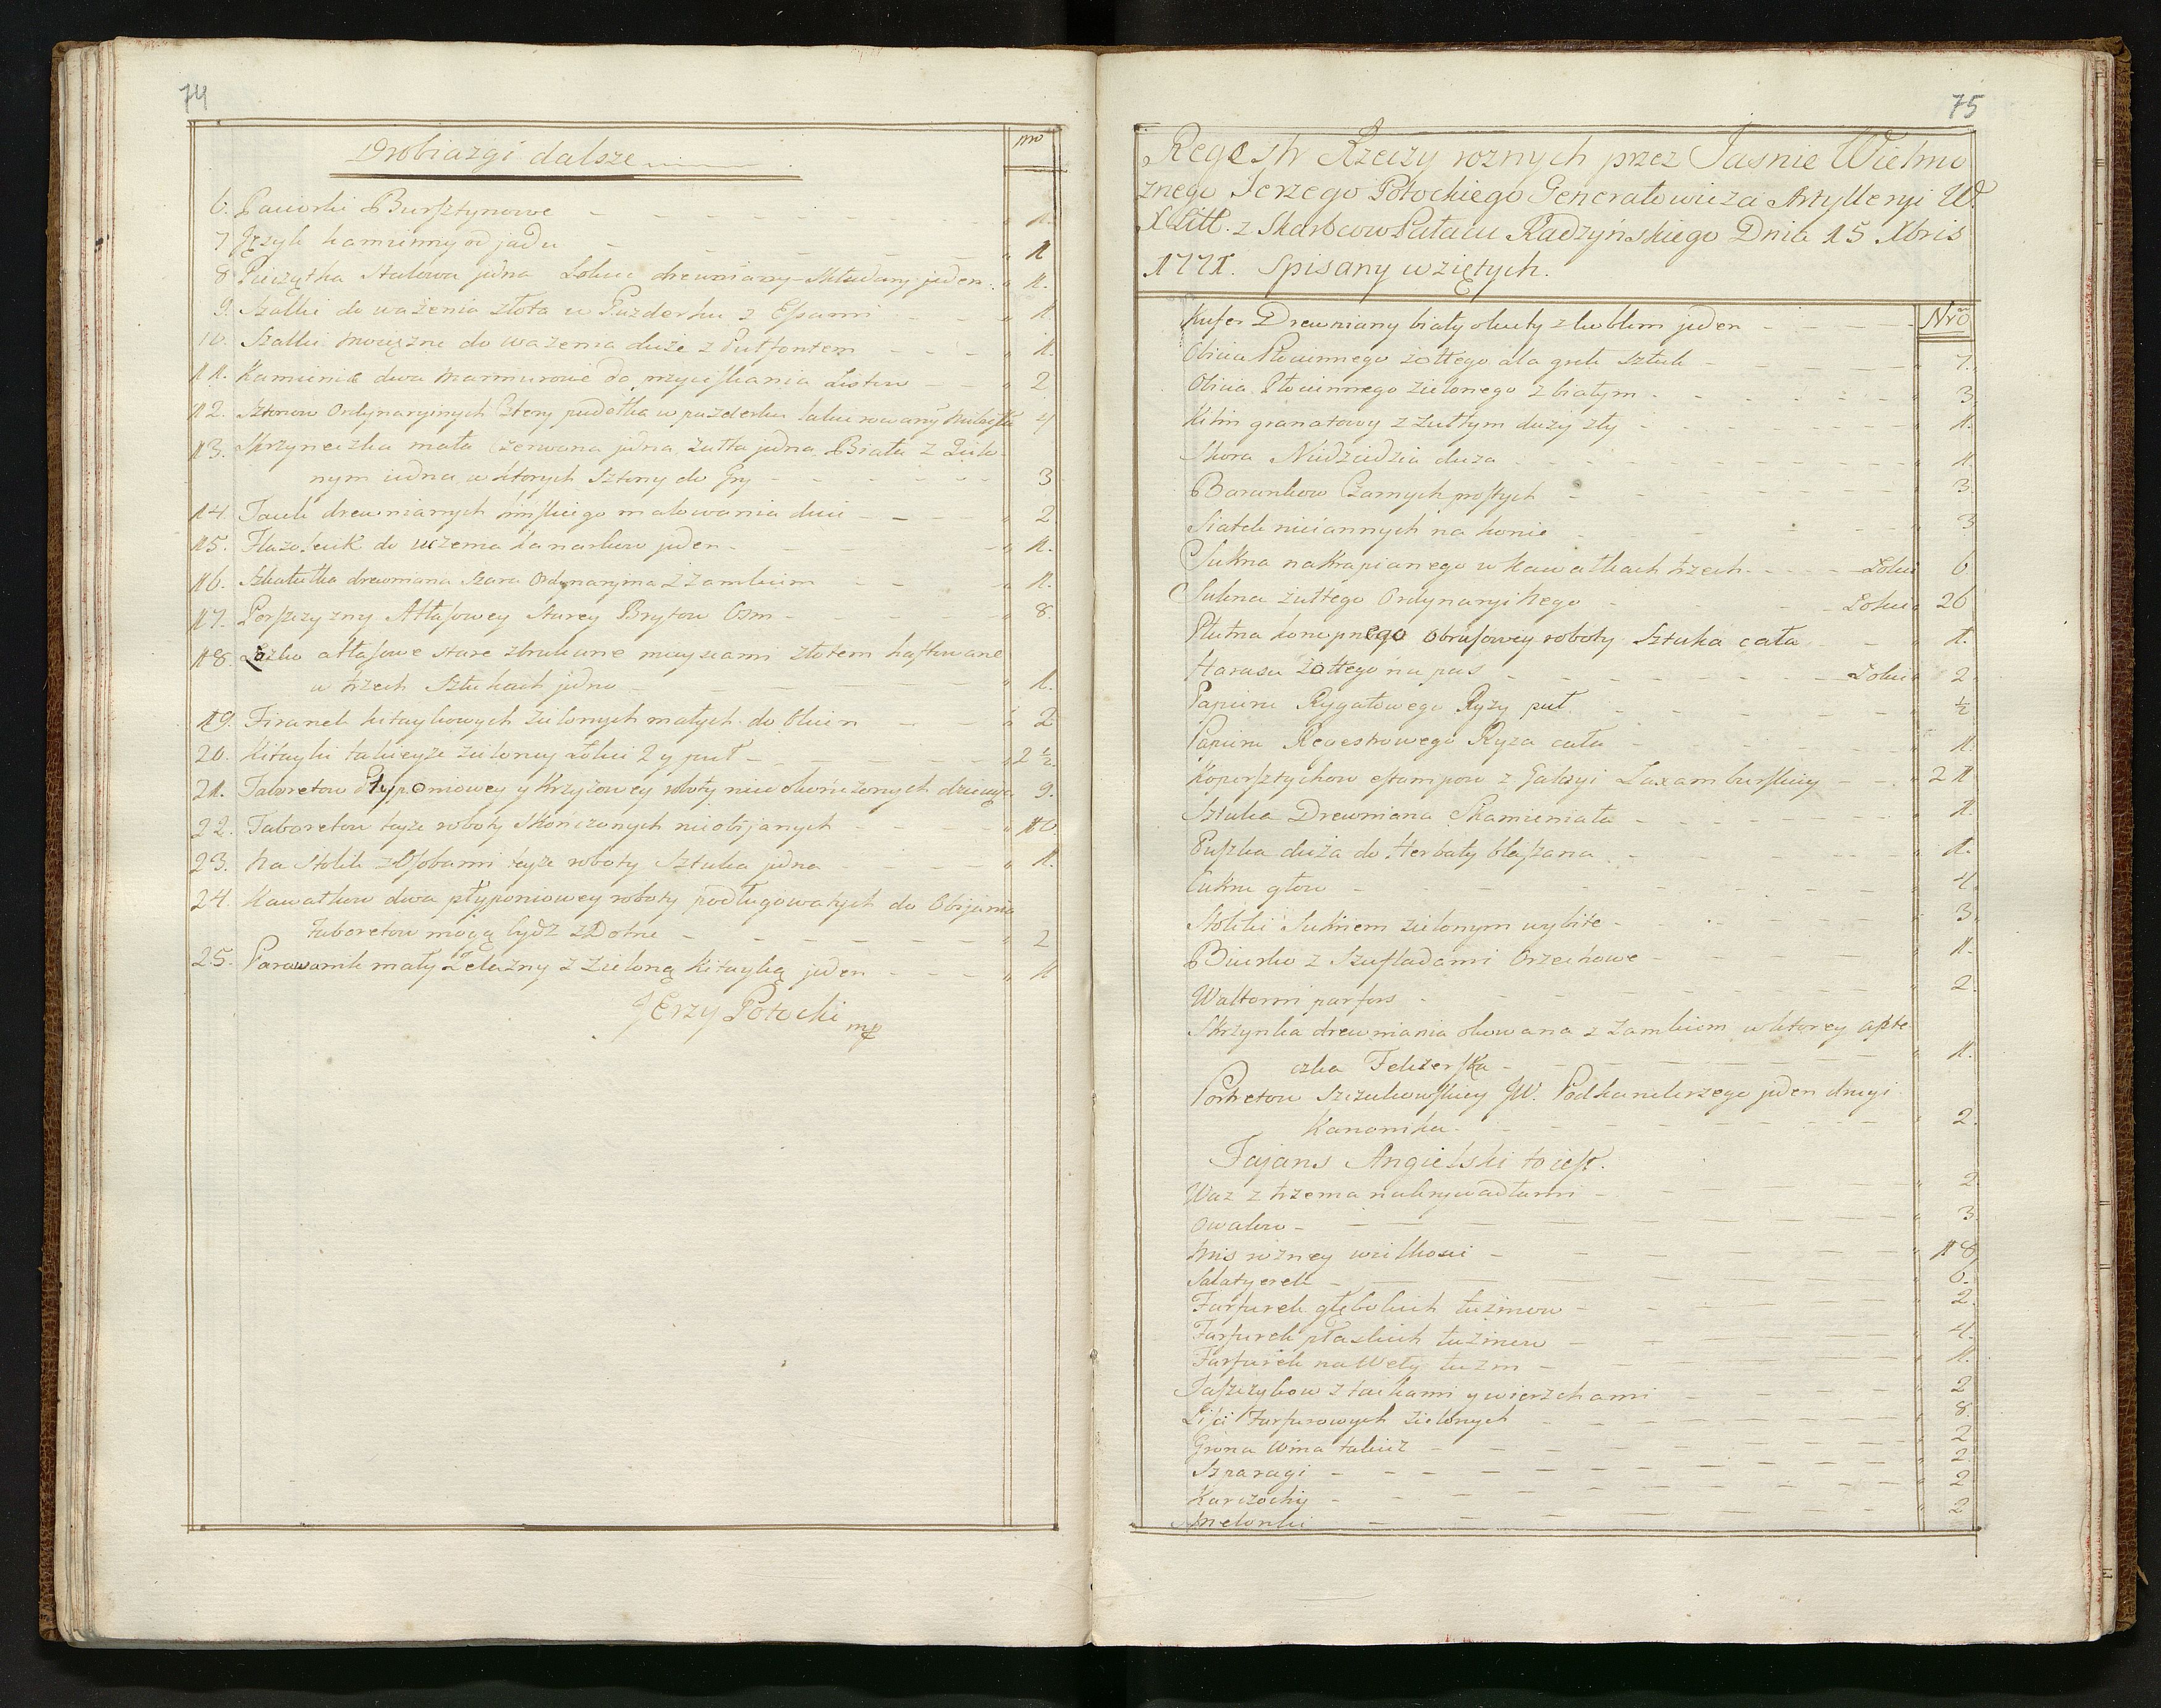 74
Drobiazgi dalsze
nro
6. Paciorki Bursztynowe 1.
7. Język kamienny od jadu 1
8. Pieczątka Stalowa jedna Łokieć drewniany Składany jeden 1.
9. Szalki do ważenia złota w Puzderku z Essami 1
10. Szalki mosiężne do ważenia duże z Pułfontem 1.
11. Kamienie dwa marmurowe do przyciskania Listow 2
12. Sztonow Ordynaryinych Cztery pudełka w puzderku lakierowanym 4
13. Skrzyneczka mała Czerwona jedna, żułta jedna, Biała z Zielo-
nym iedna, w ktorych Sztony do Gry 3
14. Tacek drewnianych malowania dwie 2
15. Flażolecik do uczenia kanarkow jeden 1.
16. Szkatułka drewniana Szara Ordynaryina z zamkiem 1.
17. Porszyzny Attłasowey Starey Brytow Osm 8.
18. Łożko attłasowe stare złotem hafftowane
w trzech Sztukach jedno 1.
19. Firanek kitaykowych zielonych małych do Okien 2
20. Kitayki takieyże zieloney Łokci 2 y puł 2½
21. Taboretow y Krzyżowey roboty niedokończonych dziewięć 9.
22. Taboretow teyże roboty Skończonych nieobijanych 10.
23. Na Stolik z Osobami teyże roboty Sztuka jedna 1.
24. Kawałkow dwa płyponiowey roboty podługowatych do Obijania
Taboretow mogą bydz zDatne 2
25. Parawanik mały Żelazny z Zieloną Kitayką jeden 1
Jerzy Potocki mp
75
Regestr Rzeczy roznych przez Jasnie Wielmo
znego Jerzego Potockiego Generałowicza Artylleryi W.
X Litt. z Skarbcow Pałacu Radzyńskiego Dnia 15 Xbris
1771. Spisany wziętych.
Nro
Kufer Drewniany biały okuty z kublem jeden
Obicia Płociennego żołtego ala grek Sztuk 7.
Obicia Płociennego zielonego z białym 3.
Kilim granatowy z żułtym duży zły 1.
Skora Niedzwiedzia duża 1.
Barankow Czarnych prostych 3
Siatek niciannych na konie 3
Sukna nakrapianego w kawałkach trzech Łokci 6
Sukna żułtego Ordynaryinego Łokci 26
Płutna konopnego Obrusowey roboty Sztuka cała 1.
Harasu żołtego na pas Łokci 2
Papieru Rygałowego Ryzy puł ½
Papieru Regestrowego Ryza cała 1.
Kopersztychow estampow z Galeryi Luxamburskiey 21
Sztuka Drewniana Skamieniała 1.
Puszka duża do Herbaty blaszana 1.
Cukru głow 4.
Stoliki Suknem zielonym wybite 3.
Biurko z Szufladami Orzechowe 1.
Waltorni parfors 2.
Skrzynka drewniania okowana z zamkiem w ktorey apte
czka Felczerska 1.
Portretow Szczukowskiey JW. Podkanclerzego jeden drugi
Kanonika 2.
Fajans Angielski to jest.
Waz z trzema nakrywadłami 2
Owalow 3
Mis rożney wielkosci 18
Salatyerek 6.
Farfurek głębokich tuzinow 2.
Farfurek płaskich tuzinow 4.
Farfurek na Wety tuzin 1.
Jaszczykow z tackami y wierzchami 2
Lisci Farfurowych zielonych 8.
Grona Wina takież 2
Szparagi 2
Karczochy 2
Melonki 2